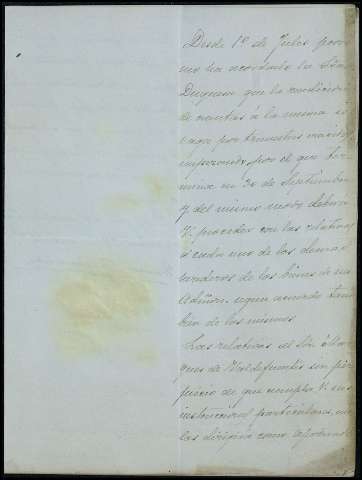 Desde 1º de Julio
mo ha acordado la Sra
Duquesa que la rendicion
de cuentas á la misma se
haga por trimestres
empezando por el que ter
mina en 30 de Septiembre
y del mismo modo debera
V. proceder con las relativas
á cada uno de los demas
herederos de los bienes de esa
Admon. segun acuerdo tam
bien de los mismos.
Las relativas al Sr. Mar
ques de Valdefuentes sin per
juicio de que cumpla V. sus
instrucciones particulares, me
las dirigirá como